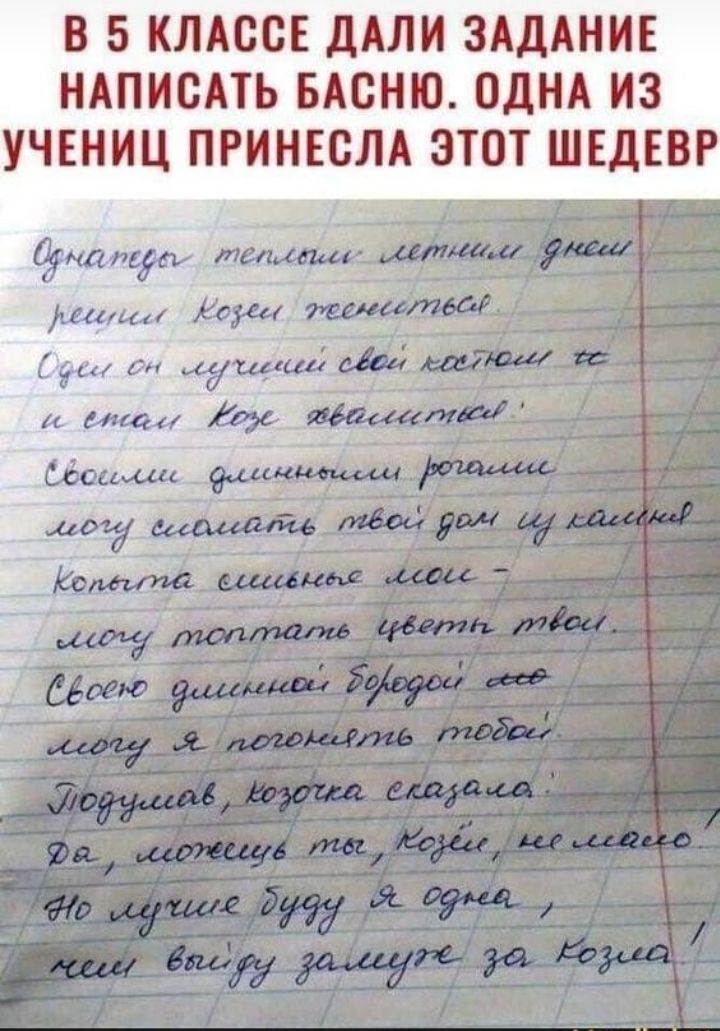 В 5 КЛАССЕ ДАЛИ ЗАДАНИЕ
НАПИСАТЬ БАСНЮ. ОДНА ИЗ
УЧЕНИЦ ПРИНЕСЛА ЭТОТ ШЕДЕВР
Однажды теплым летним днем
решил Козел жениться
Одел он лучший свой костюм и
и стал Козе хвалиться:
Своими длинными рогами
могу сломать твой дом из камня
Копыта сильные мои -
могу топтать цветы твои.
Своею длинной бородой мо
могу я погонять тобой.
Подумав, Козочка сказала:
Да, можешь ты, Козёл, не мало!
Но лучше буду я одна,
чем выйду замуж за Козла!